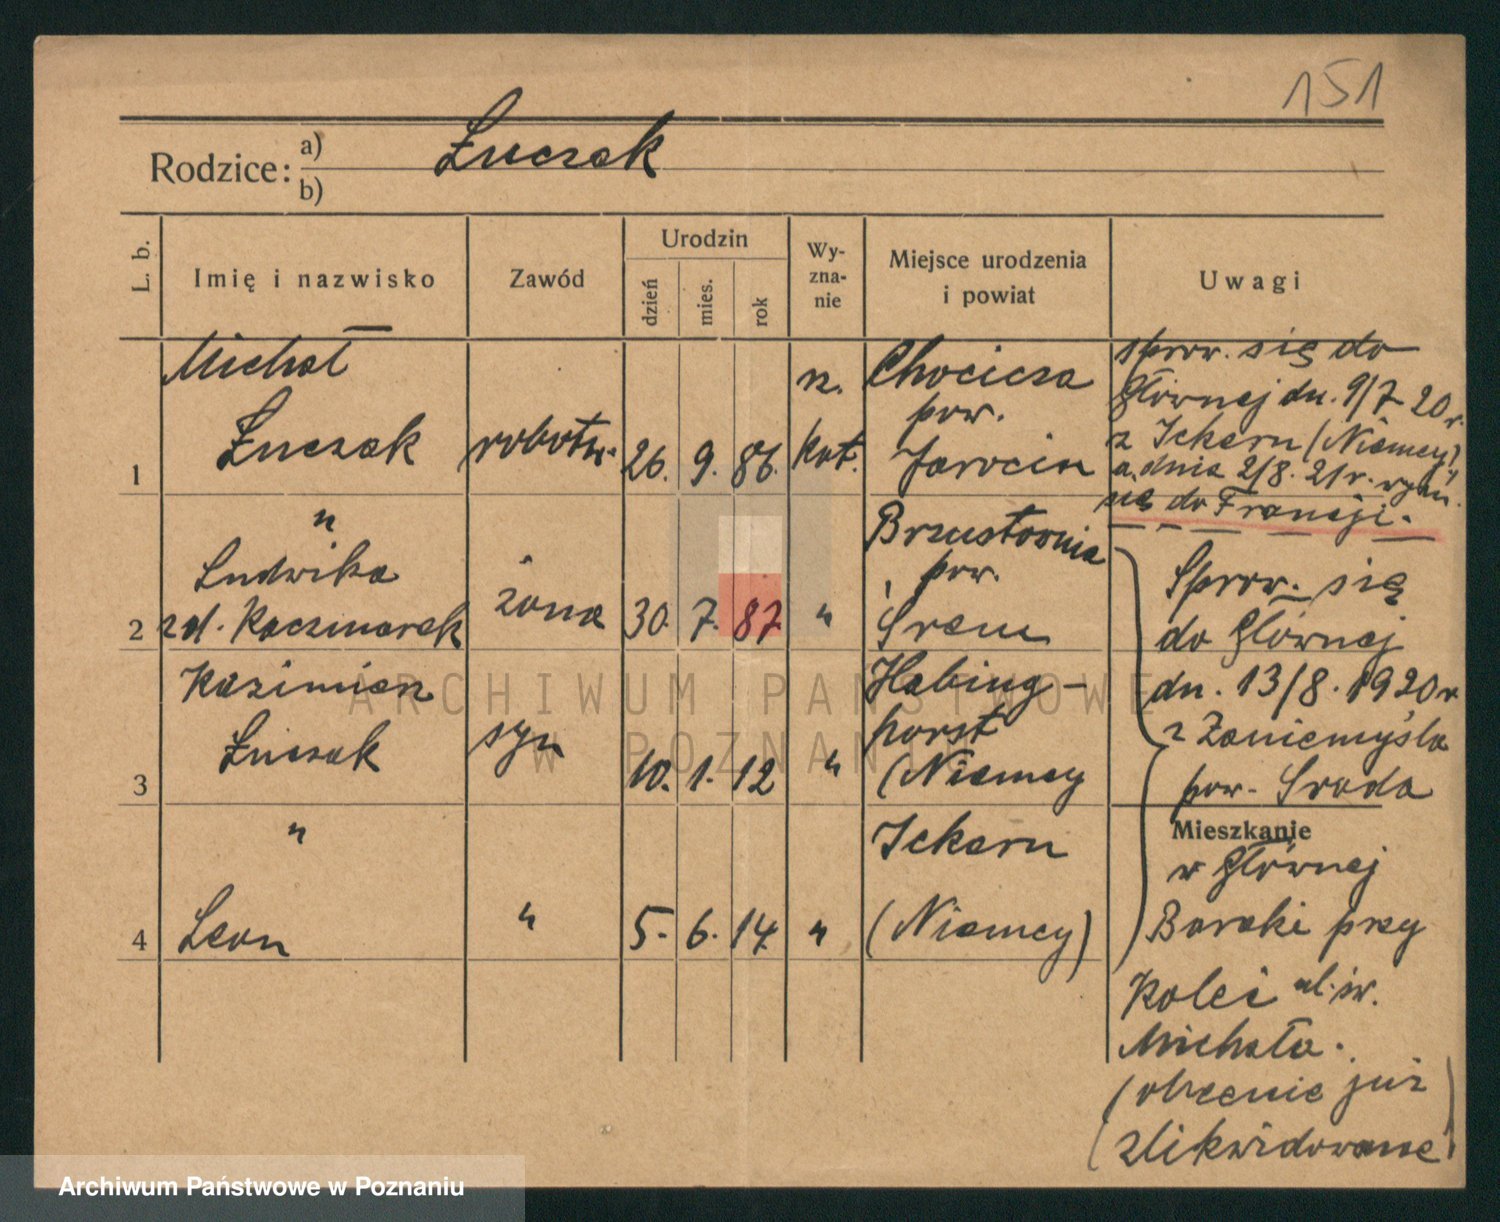 151
Rodzice: a) Łuczak
b)
L. b.
Imię i nazwisko
Zawód
Urodzin
dzień
mies.
rok
Wy-
zna-
nie
Miejsce urodzenia
i powiat
Uwagi
1
Michał
Łuczak
robotn.
26. 9. 86.
rz.
kat.
Chocicza
pow.
Jarocin
sprow. się do
Głównej dn. 9/7 20 r.
z Ickern (Niemcy)
a dnia 2/8. 21 r.
się do Francji.
2
"
Ludwika
zd. Kaczmarek
żona
30. 7. 87.
"
Brzustownia
pow.
Śrem
Sprow. się
do Głównej
dn. 13/8. 1920 r
z Zaniemyśla
pow. Środa
3
Kazimierz
Łuczak
syn
10. 1. 12
"
Habing-
horst
(Niemcy
4
"
Leon
"
5. 6. 14
"
Ickern
(Niemcy)
Mieszkanie
w Głównej
Baraki przy
Kolei ul. św.
Michała.
(obecnie już
zlikwidowane)
ARCHIWUM PAŃSTWOWE
W POZNANIU
Archiwum Państwowe w Poznaniu